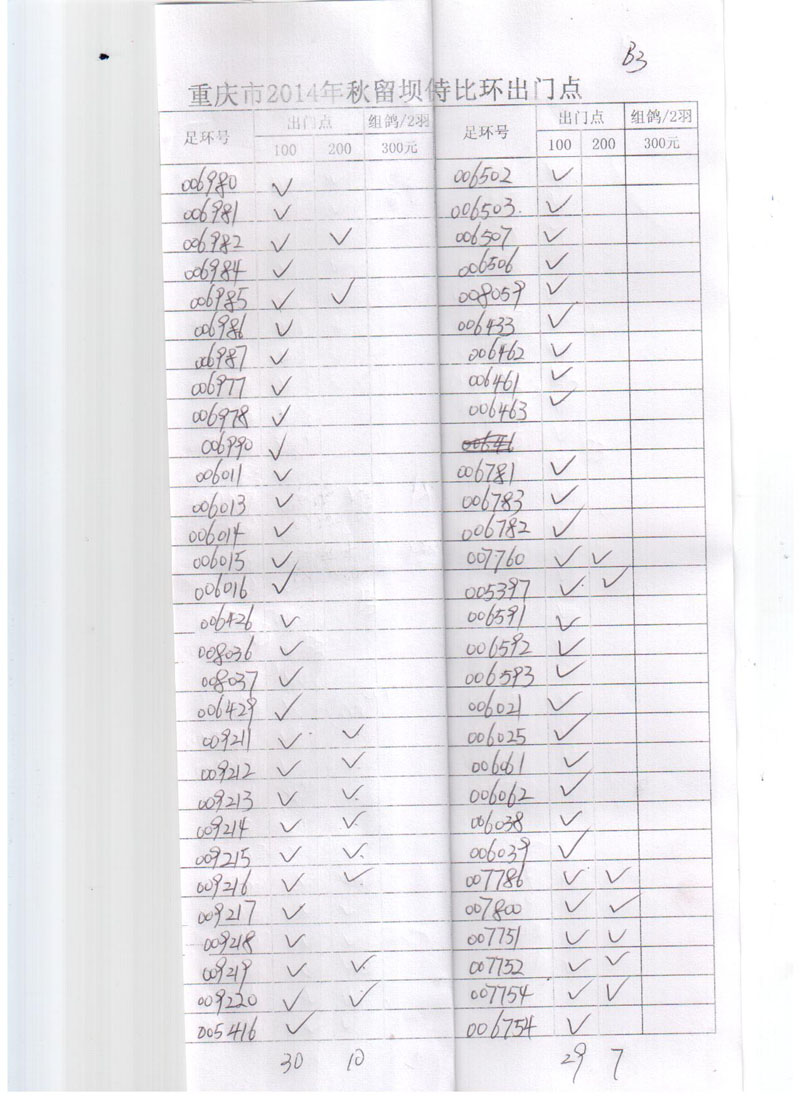 B3
重庆市2014年秋留坝侍比环出门点
足环号 出门点 组鸽/2羽 足环号 出门点 组鸽/2羽
100 200 300元 100 200 300元
006980 ✓ 006502 ✓
006981 ✓ 006503 ✓
006982 ✓ ✓ 006507 ✓
006984 ✓ 006506 ✓
006985 ✓ ✓ 008059 ✓
006986 ✓ 006433 ✓
006987 ✓ 006462 ✓
006977 ✓ 006461 ✓
006978 ✓ 006463 ✓
006990 ✓
006011 ✓ 006781 ✓
006013 ✓ 006783 ✓
006014 ✓ 006782 ✓
006015 ✓ 007760 ✓ ✓
006016 ✓ 005397 ✓ ✓
006426 ✓ 006591 ✓
008036 ✓ 006592 ✓
008037 ✓ 006593 ✓
006429 ✓ 006021 ✓
009211 ✓ ✓ 006025 ✓
009212 ✓ ✓ 006061 ✓
009213 ✓ ✓ 006062 ✓
009214 ✓ ✓ 006038 ✓
009215 ✓ ✓ 006039 ✓
009216 ✓ ✓ 007786 ✓ ✓
009217 ✓ 007800 ✓ ✓
009218 ✓ 007751 ✓ ✓
009219 ✓ ✓ 007752 ✓ ✓
009220 ✓ ✓ 007754 ✓ ✓
005416 ✓ 006754 ✓
30 10 29 7